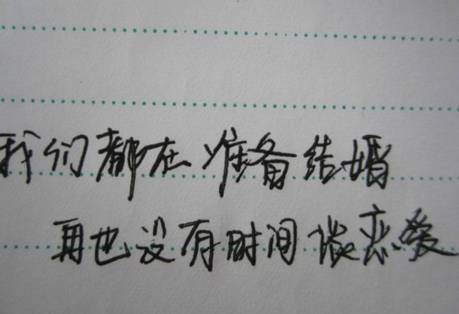 我们都在准备结婚
再也没有时间谈恋爱